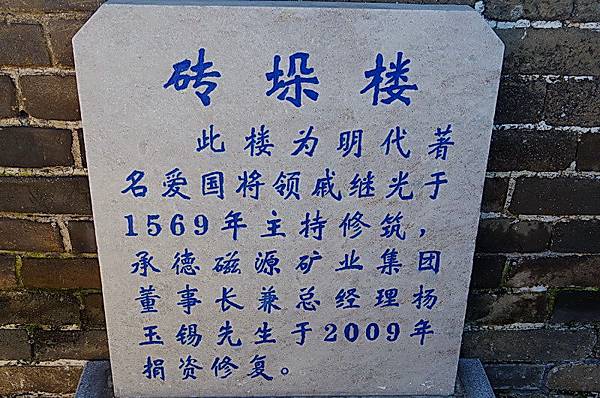 砖垛楼
此楼为明代著
名爱国将领戚继光于
1569年主持修筑，
承德磁源矿业集团
董事长兼总经理杨
玉锡先生于2009年
捐资修复。